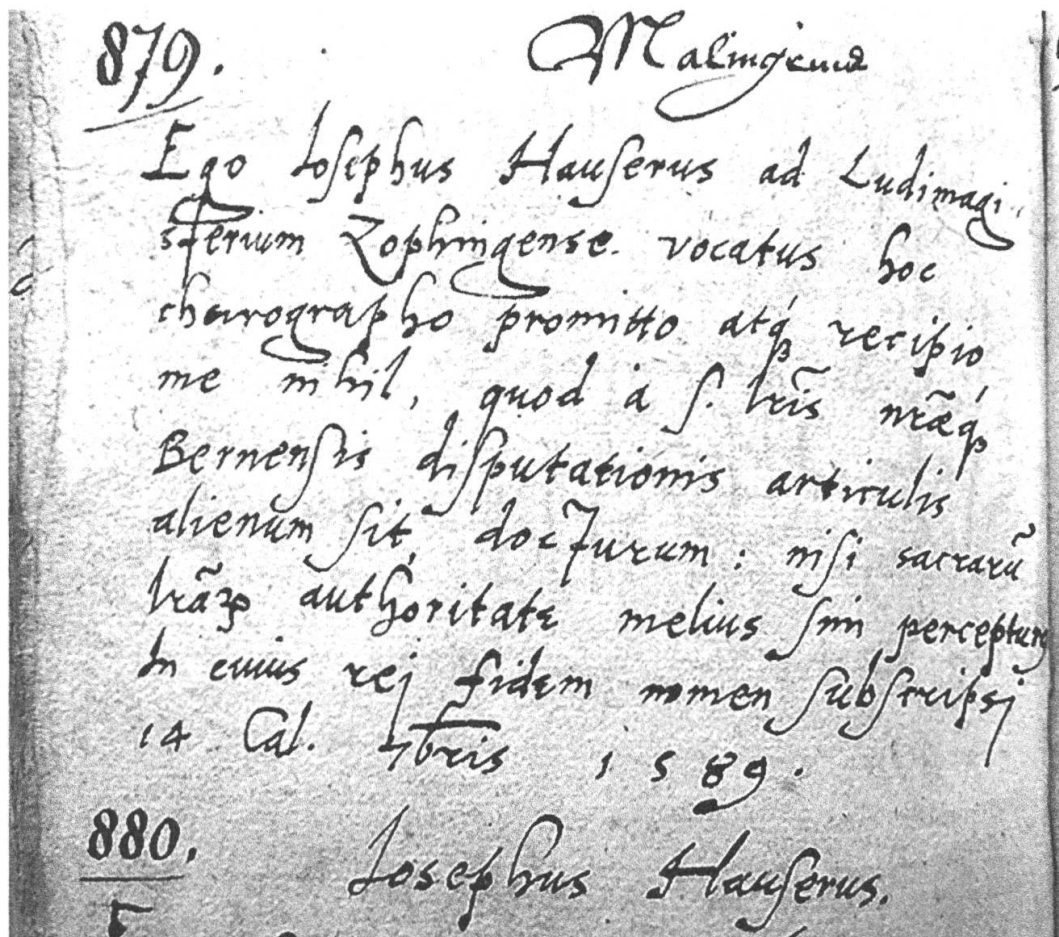 879.
Ego Iosephus Hauserus ad Ludimagi-
sterium Zophingense. vocatus hoc
cheirographo promitto atq́ꝫ recipio
me nihil, quod à s. lr̃is nr̃æq́ꝫ
Bernensis disputationis articulis
alienum sit, docturum: nisi sacrarũ
lrãꝝ authoritate melius sim
In cuius rej fidem nomen subscripsj
14 Cal. 7bris 1589.
880.
Iosephus Hauserus.